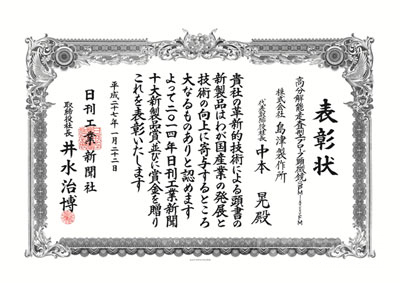 表彰状
高分解能走査型プローブ顕微鏡
株式会社 島津製作所
代表取締役社長 中本 晃 殿
貴社の革新的技術による頭書の
新製品はわが国産業の発展と
技術の向上に寄与するところ
大なるものありと認めます
よって二〇一四年日刊工業新聞
十大新製品賞並びに賞金を贈り
これを表彰いたします
平成二十七年一月二十二日
日刊工業新聞社
取締役社長 井水治博